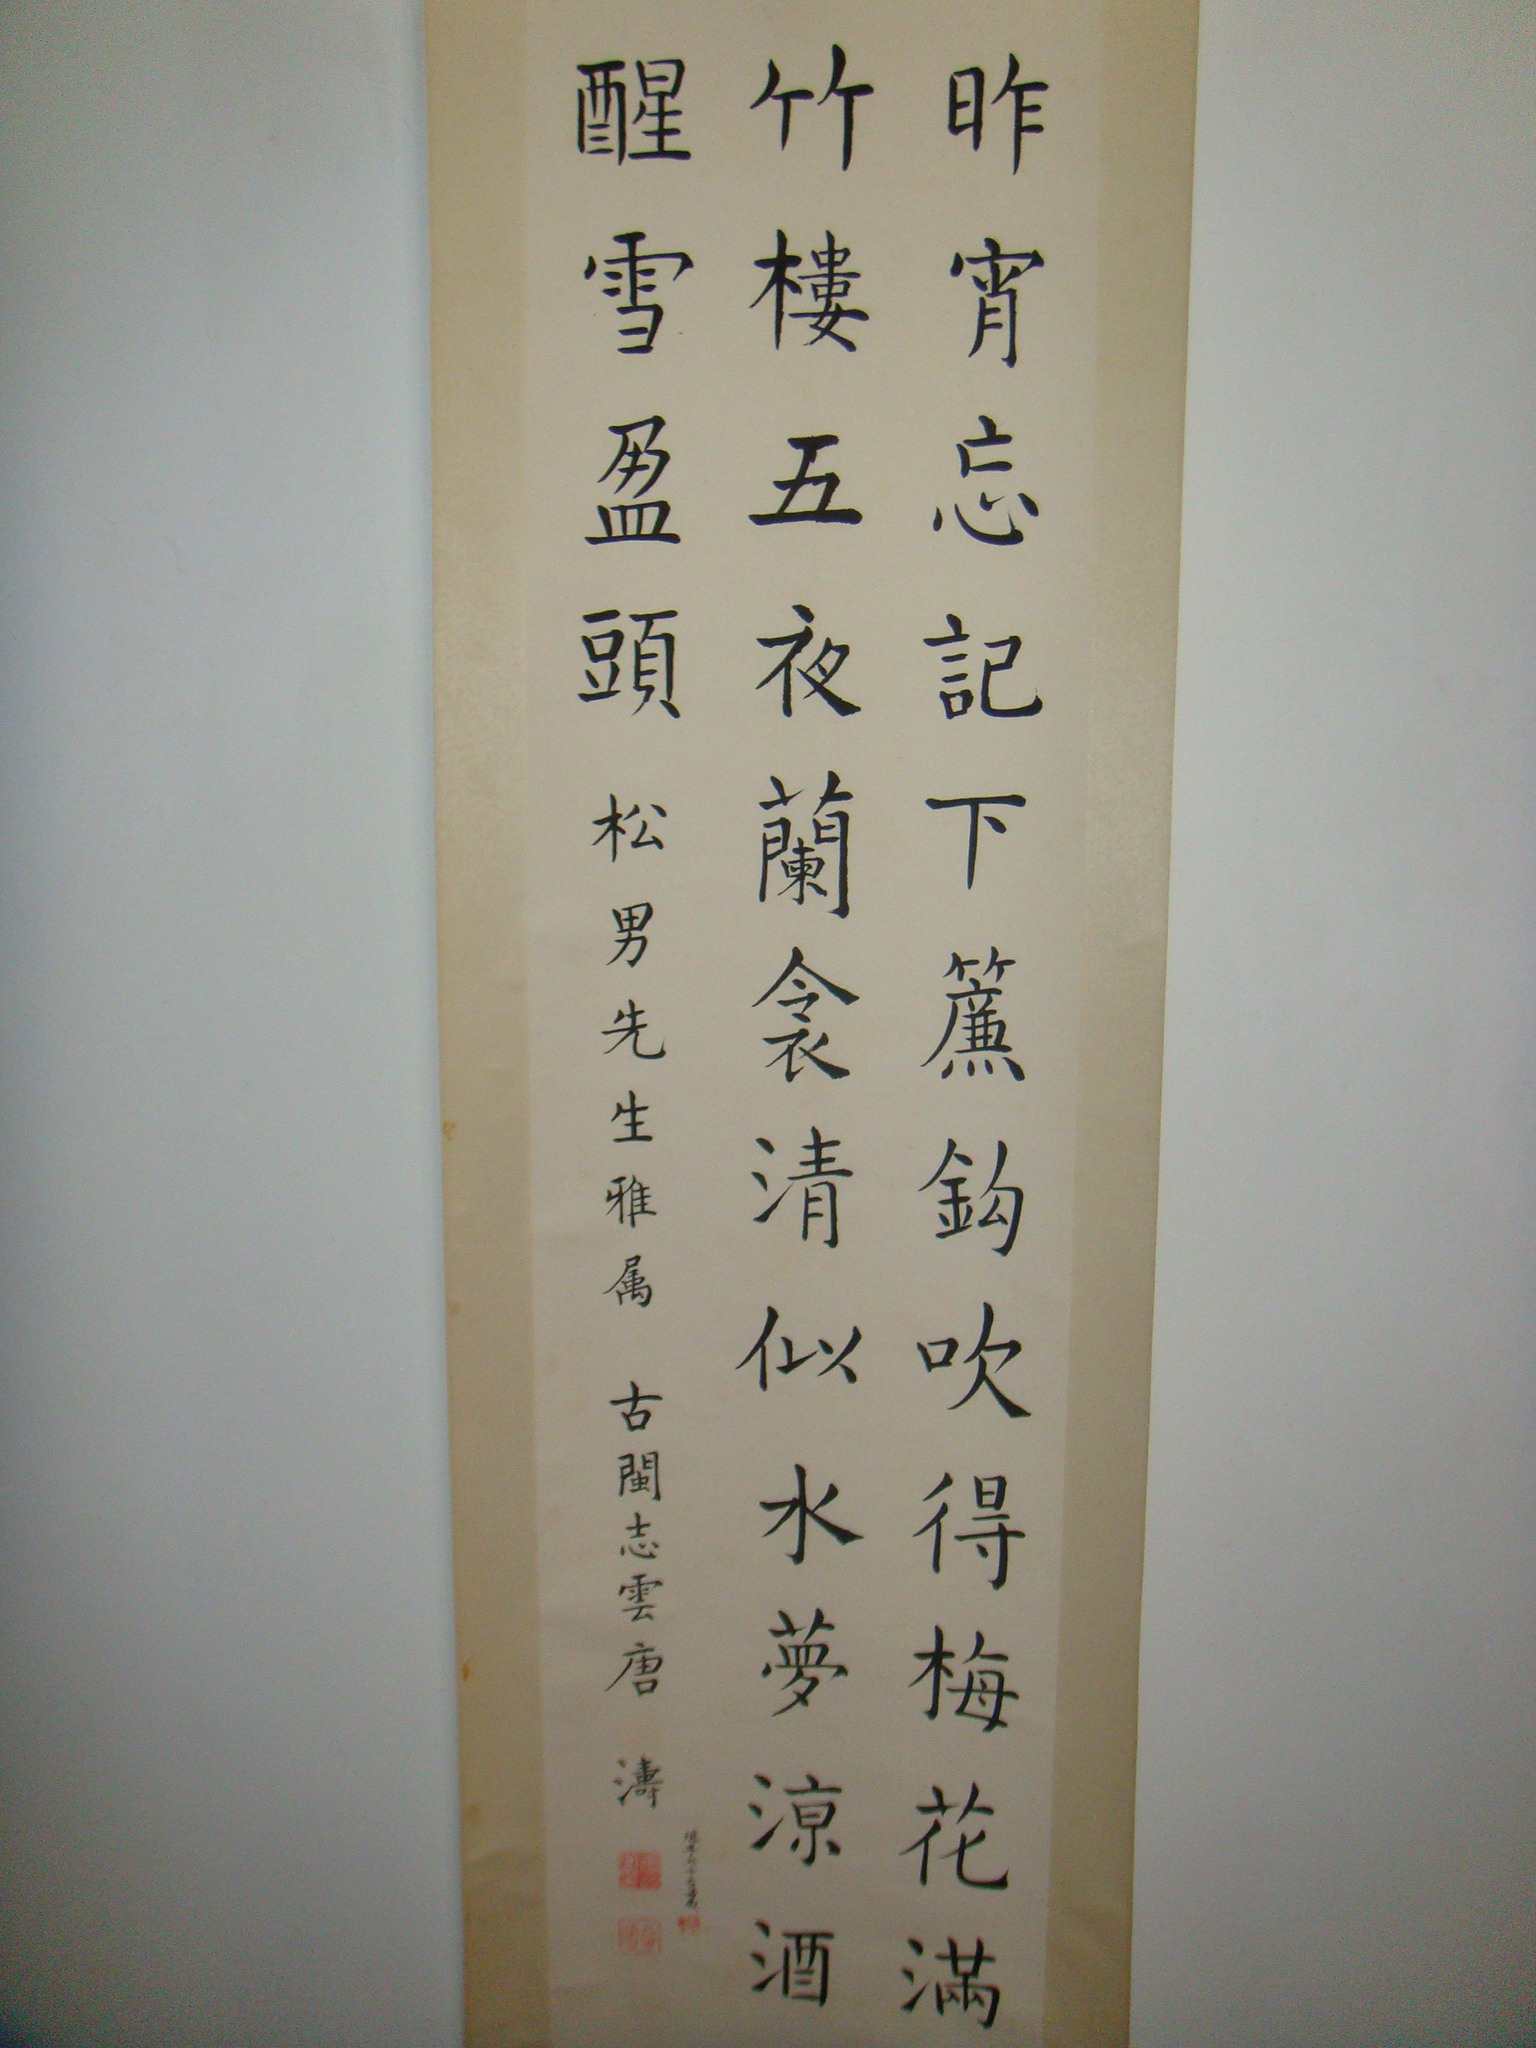 昨宵忘記下簾鈎吹得梅花滿
竹樓五夜蘭衾清似水夢涼酒
醒雪盈頭
松男先生雅属 古閩志雲唐濤